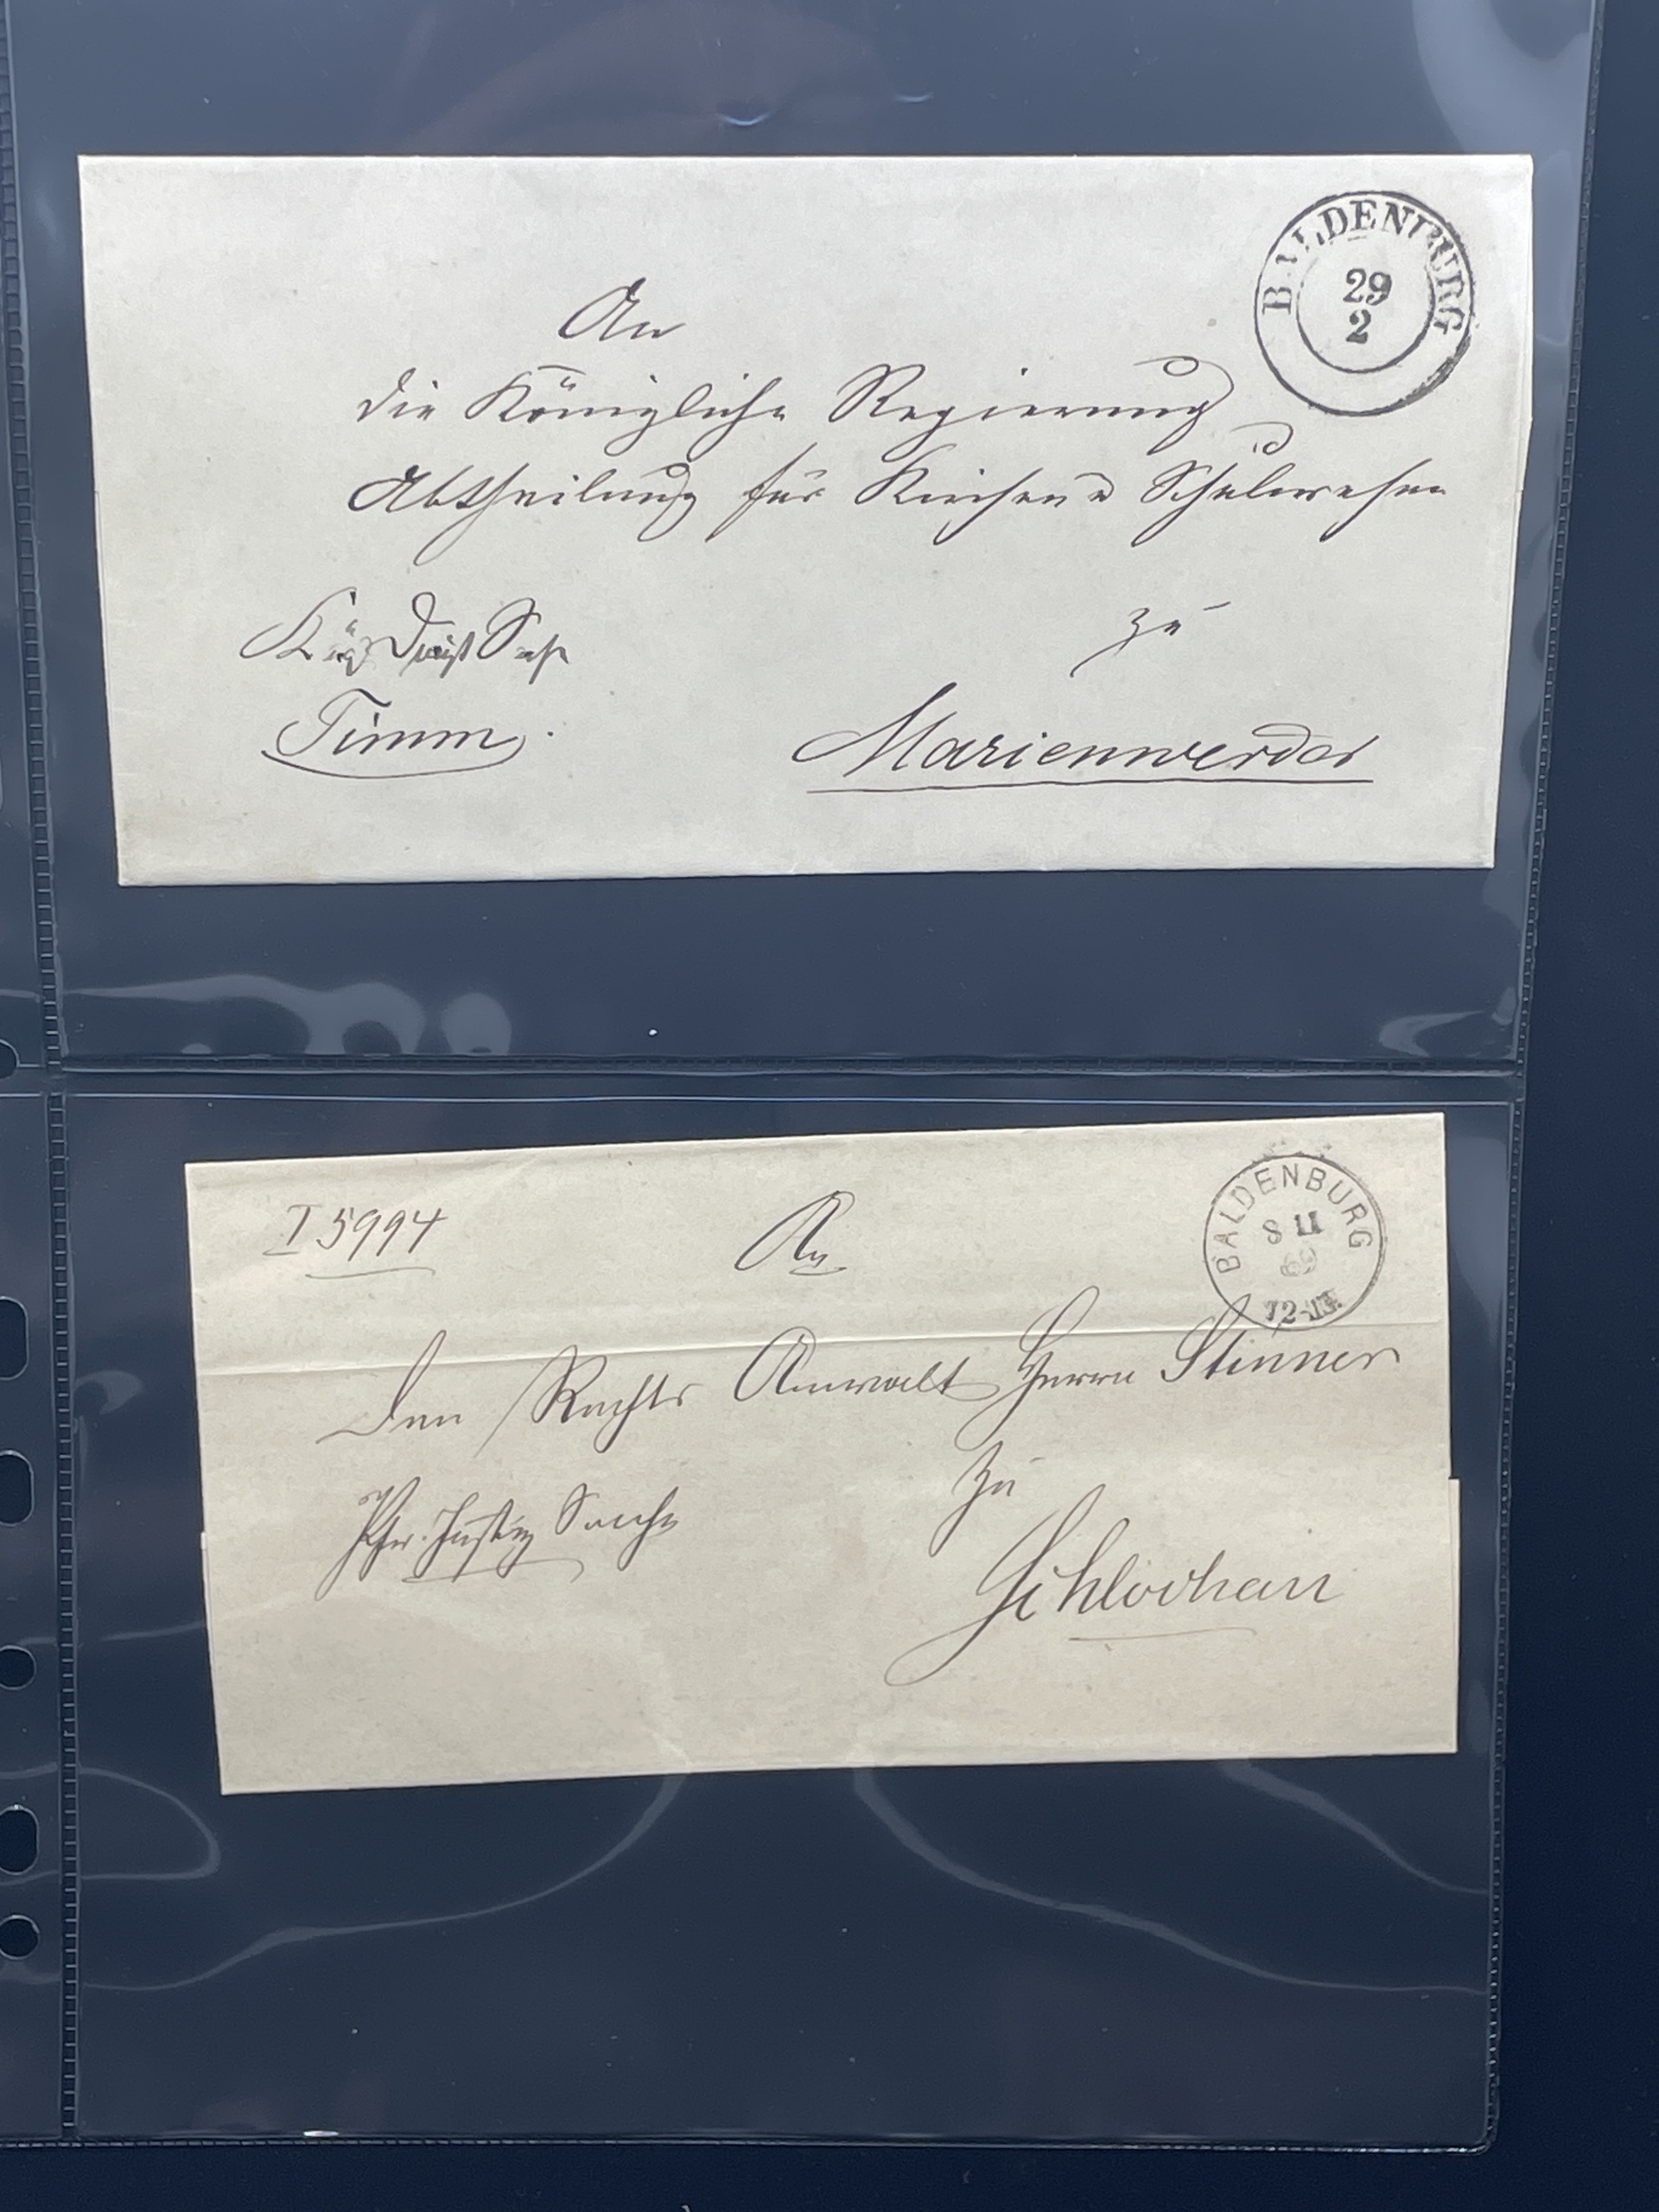 BALDENBURG
29
2
An
die Königliche Regierung
Abtheilung für Kirchen u Schulwesen
zu
Marienwerder
Timm.
BALDENBURG
8 11
69
12-1N.
I 5994
An
den Rechts Anwalt Herrn Stinner
zu
Justiz Sache
Schlochau